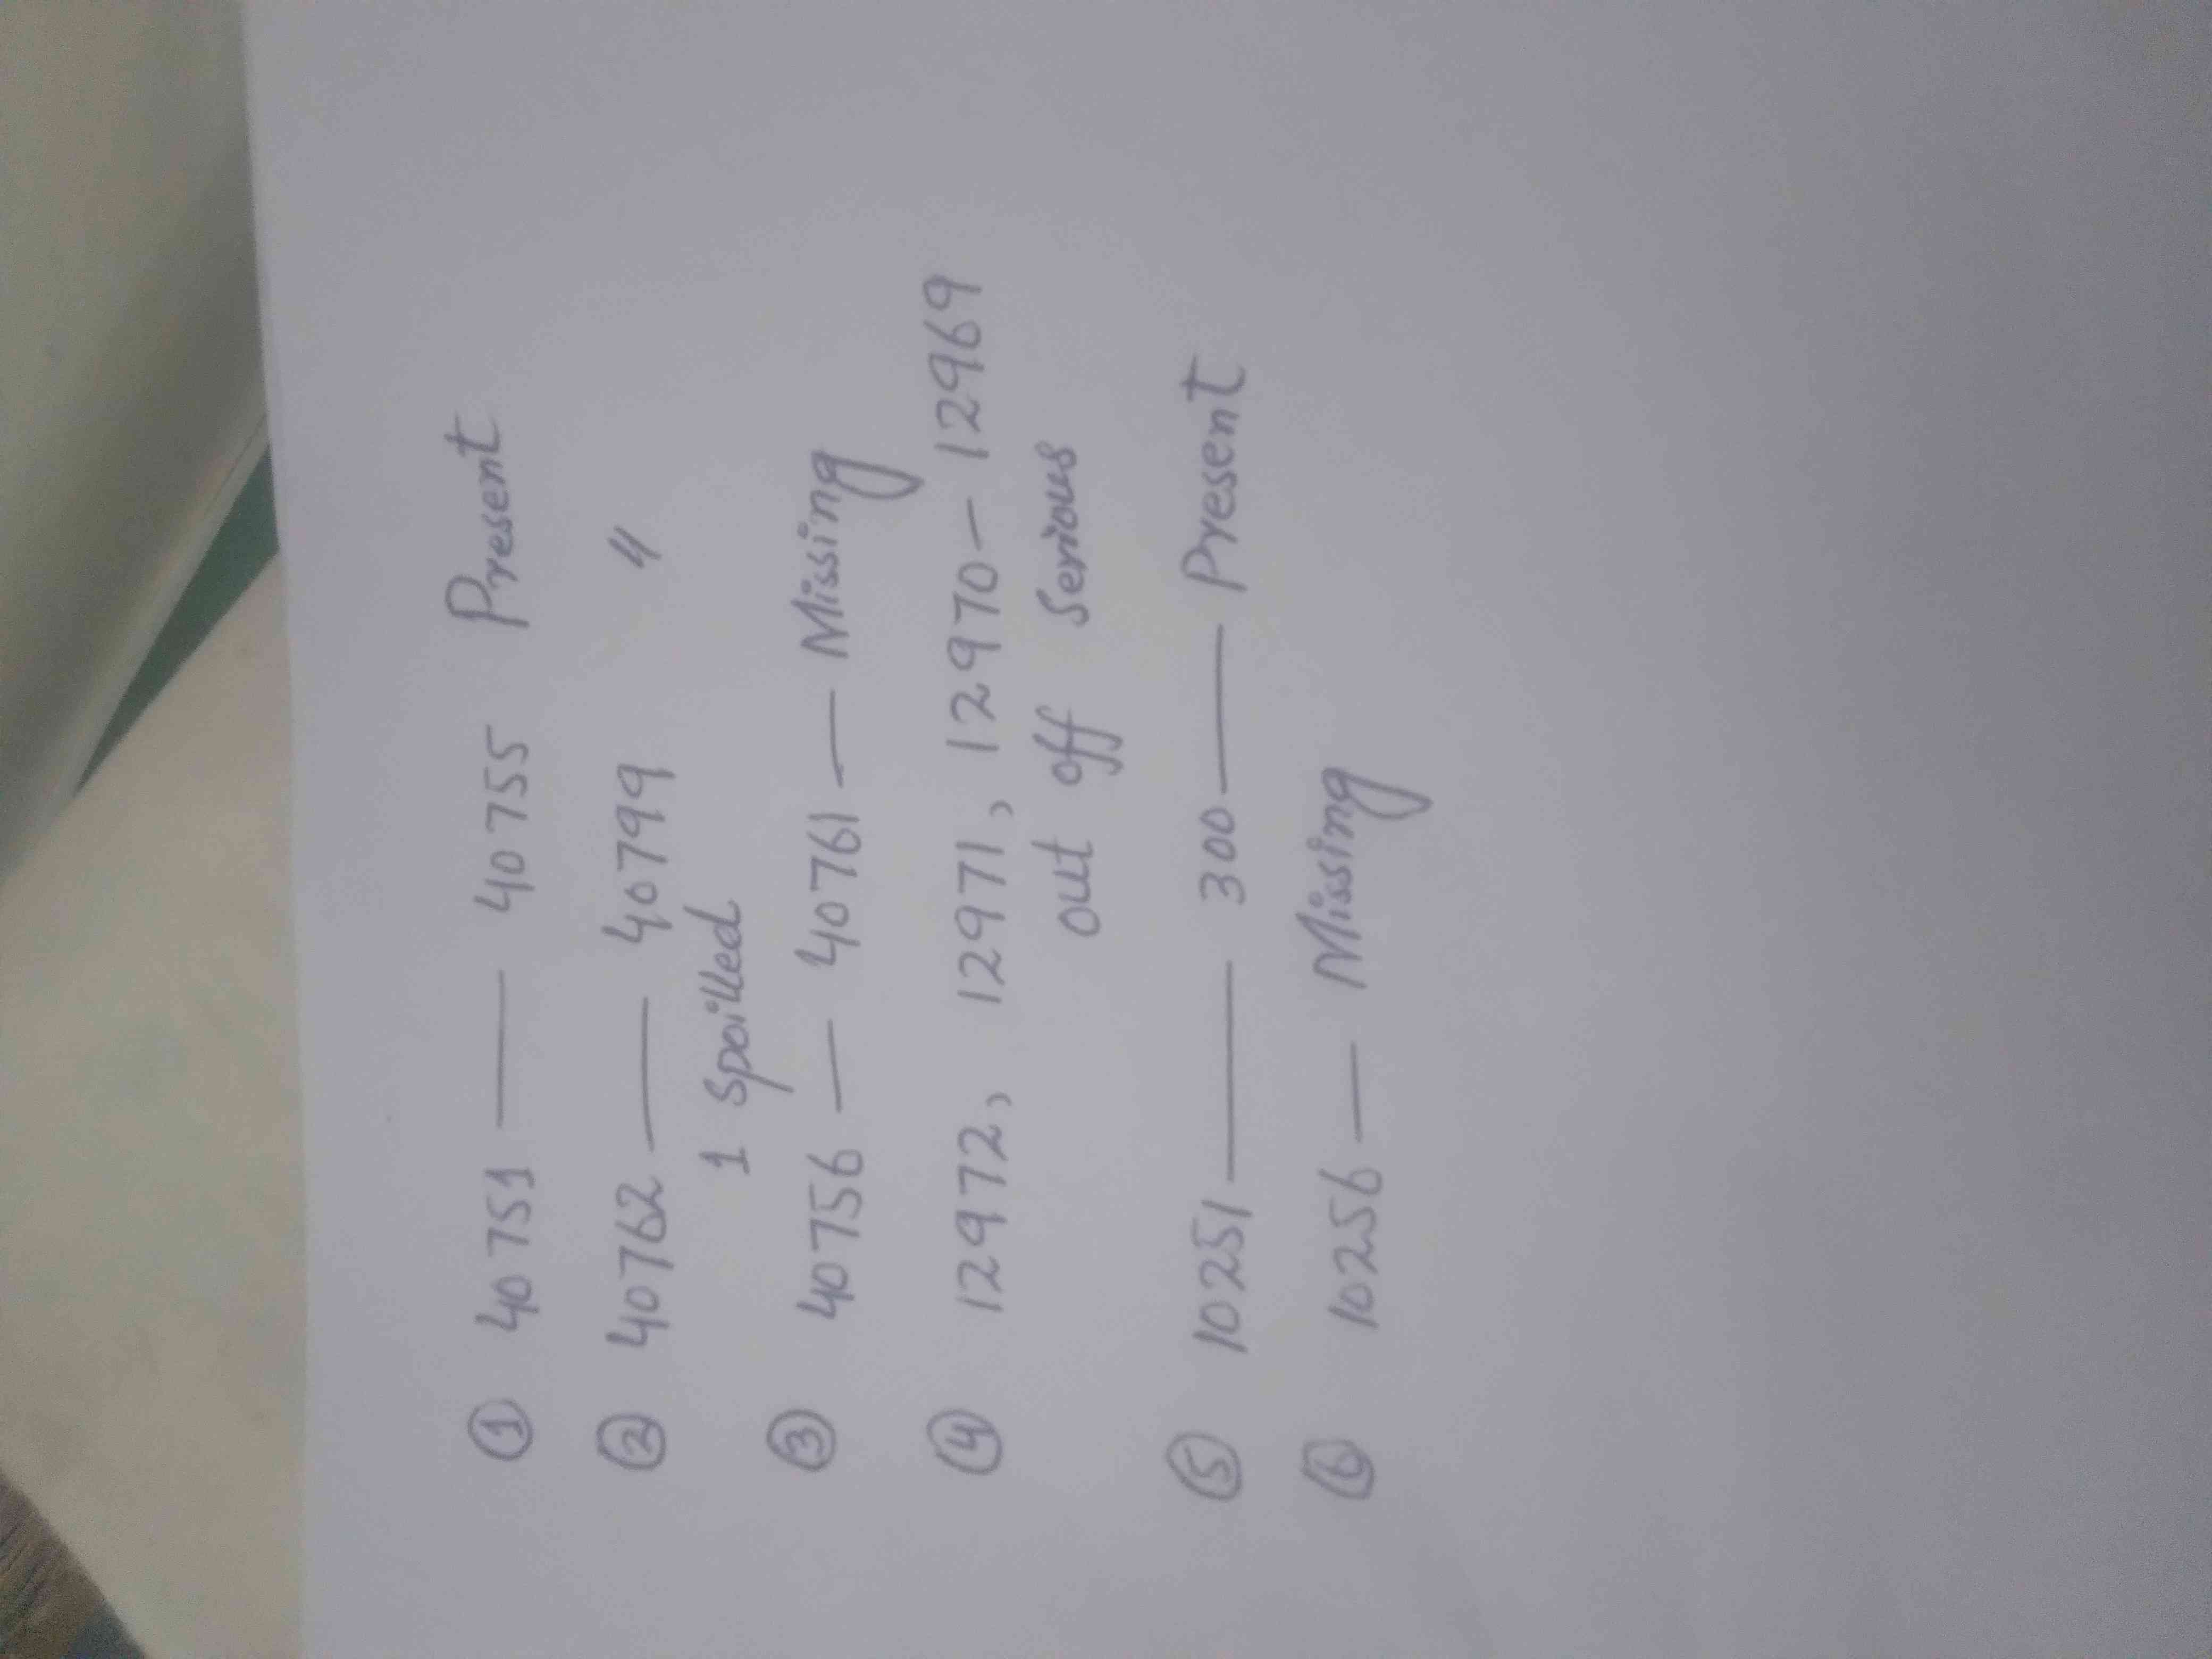 ① 40751 — 40755 Present
② 40762 — 40799 〃
1 spoilled
③ 40756 — 40761 — Missing
④ 12972, 12971, 12970 - 12969
out off Serious
⑤ 10251 — 300 — Present
⑥ 10256 — Missing